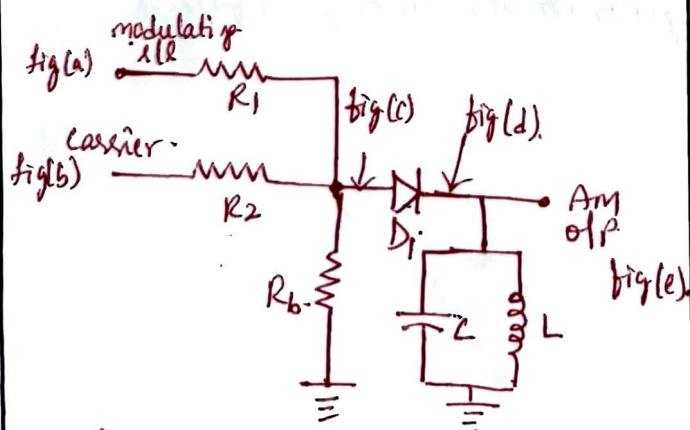 modulating
fig(a) i/p
R1
fig(c)
fig(d).
carrier.
fig(b)
R2
D1
AM
o/p.
fig(e).
Rb.
C
L